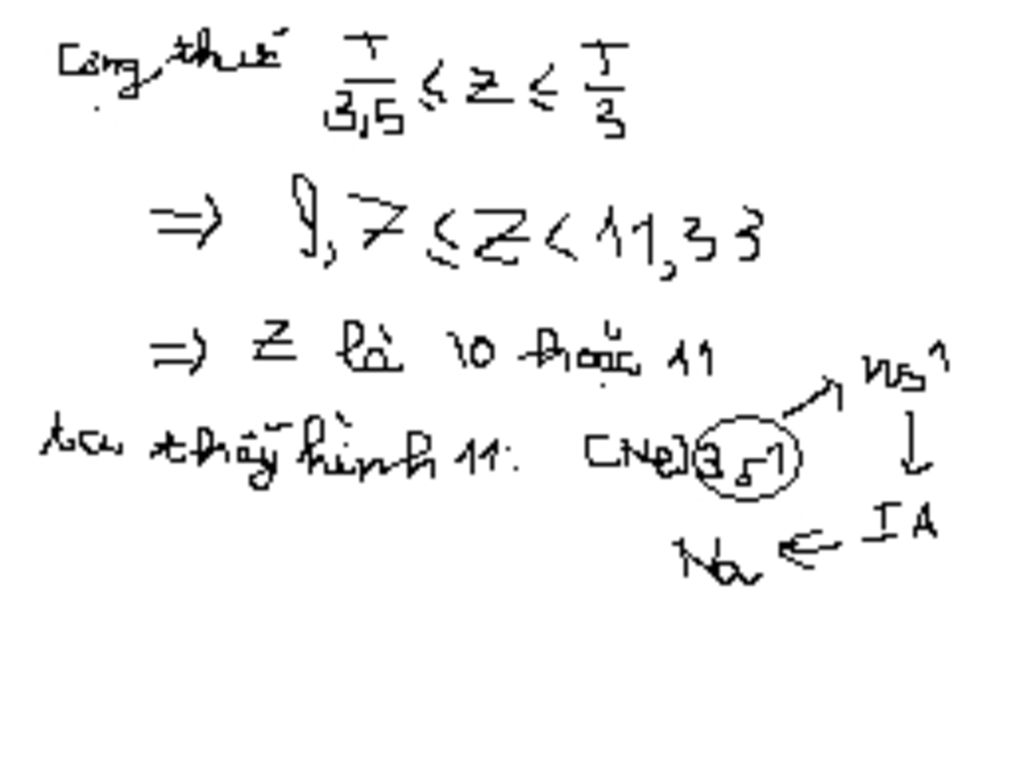 Công thức T/3,5 ≤ Z ≤ T/3
⇒ 9,7 ≤ Z < 11,33
⇒ Z là 10 hoặc 11
ta thấy hình 11: [Ne]3s1 → ns1
↓
Na ⇐ IA